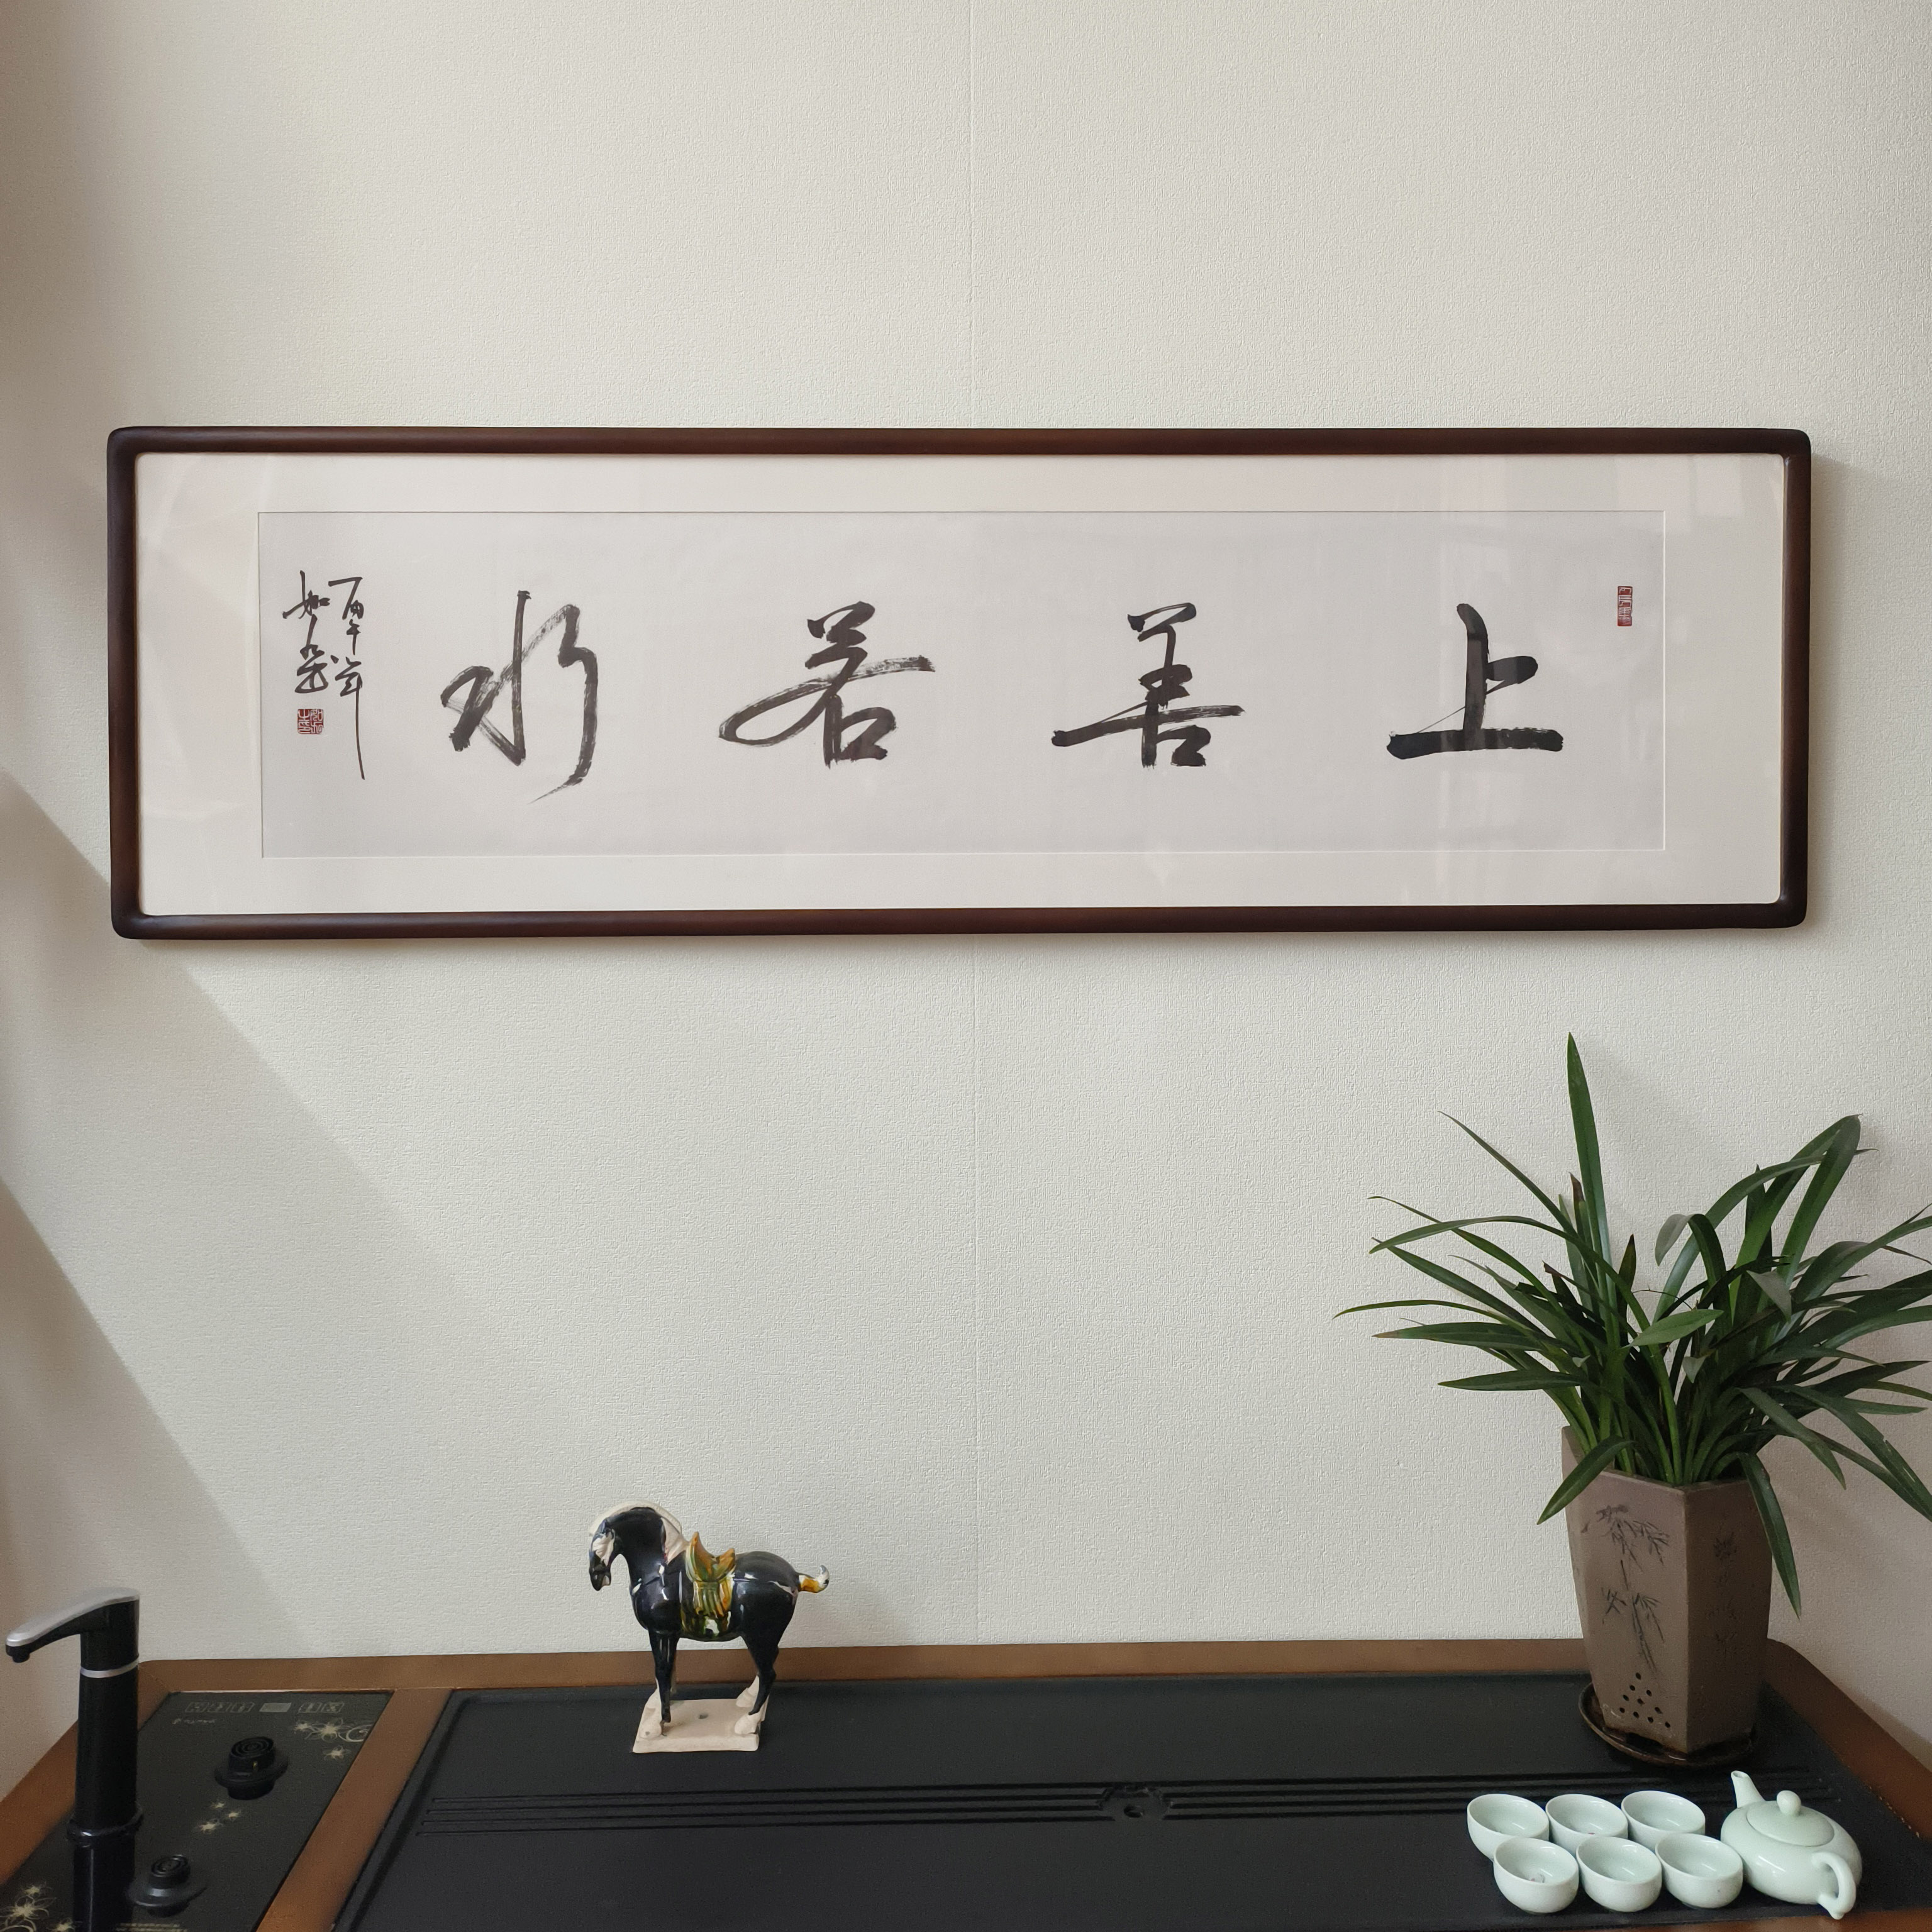 上善若水
丙午年